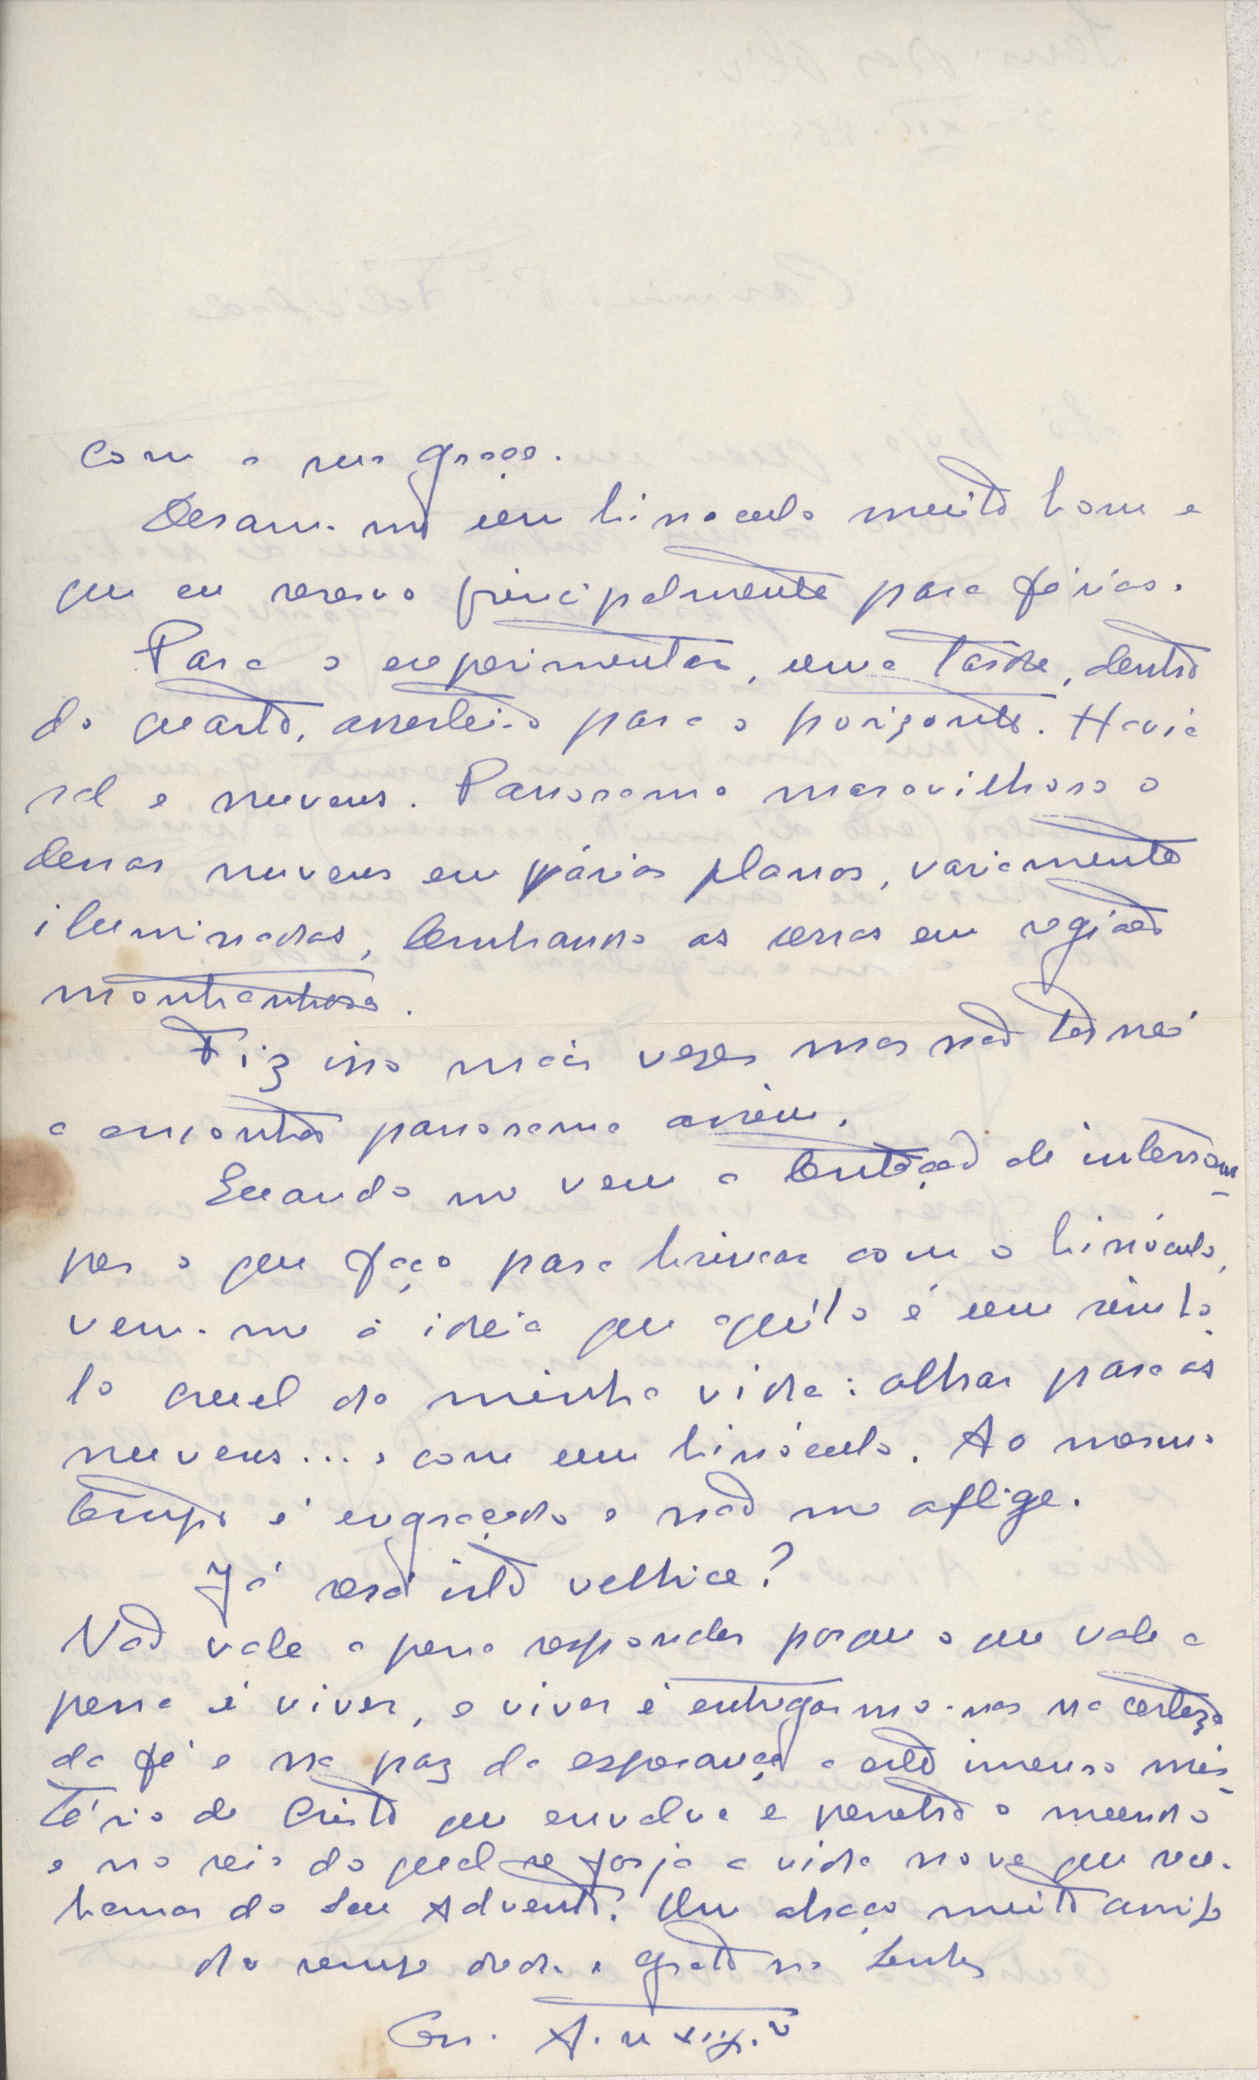 com a sua graça.
Deram-me um binoculo muito bom e
que eu reservo principalmente para férias.
Para o experimentar, uma tarde, dentro
do quarto, assestei-o para o horizonte. Havia
sol e nuvens. Panorama maravilhoso o
dessas nuvens em vários planos, variamente
iluminadas, lembrando as serras em região
montanhosa.
Fiz isso mais vezes mas não tornei
a encontrar panorama assim.
Quando me vem a tentação de interrom-
per o que faço para brincar com o binóculo,
vem-me a ideia que aquilo é um símbo
lo cruel da minha vida: olhar para as
nuvens... e com um binóculo. Ao mesmo
tempo é engraçado e não me aflige.
Já será isto velhice?
Não vale a pena responder porque o que vale a
pena é viver, e viver é entregarmo-nos na certeza
da fé e na paz da esperança a este imenso mis-
tério de Cristo que envolve e penetra o mundo
e no seio do qual se forja a vida nova que rece-
bemos do Seu Advento. Um abraço muito amigo
do sempre dedº e grato no Senhor
Con. A.